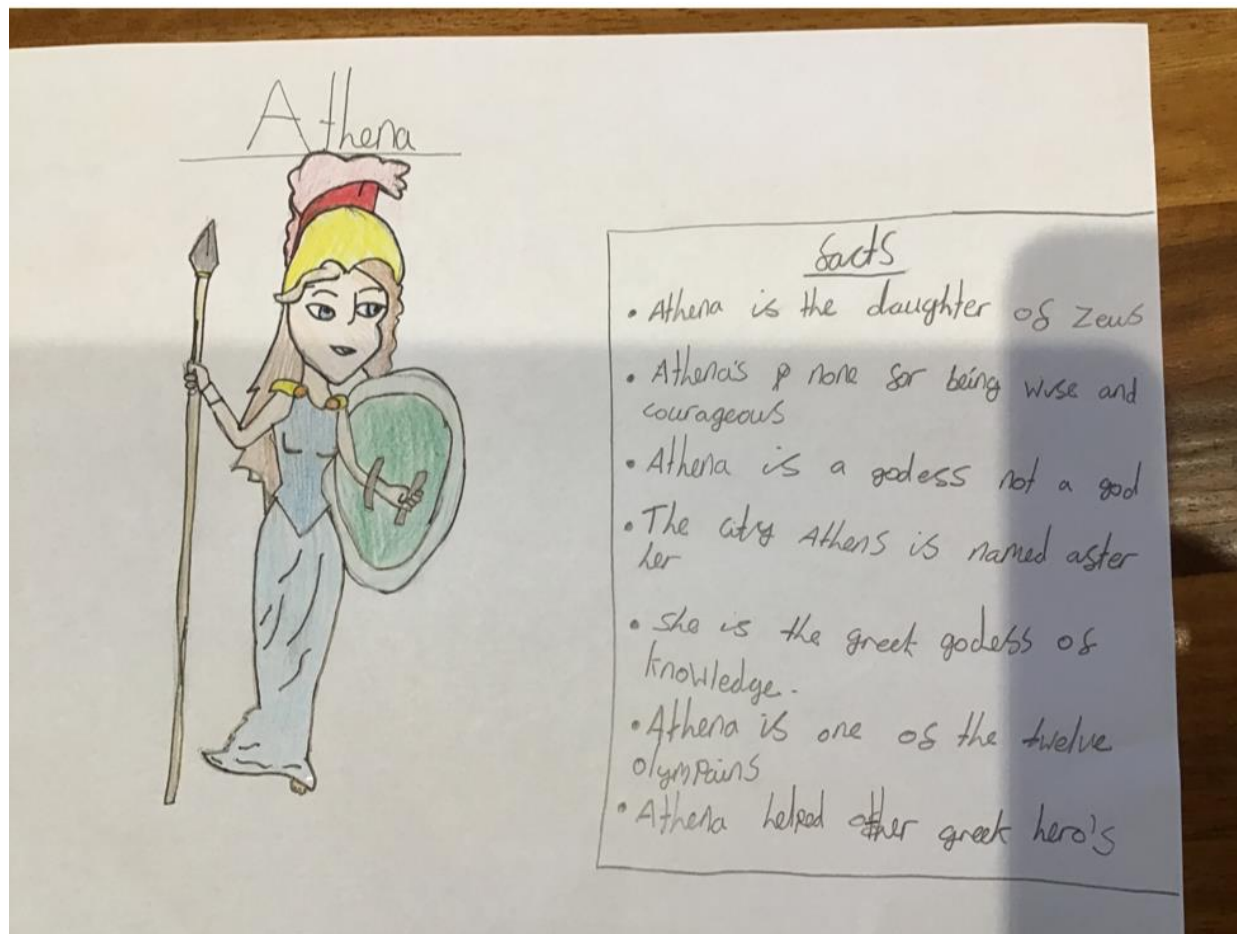 Athena
facts
• Athena is the daughter of Zeus
• Athena's none for being wise and
courageous
• Athena is a godess not a god
• The city Athens is named after
her
• She is the greek godess of
knowledge.
• Athena is one of the twelve
olympains
• Athena helped other greek hero's